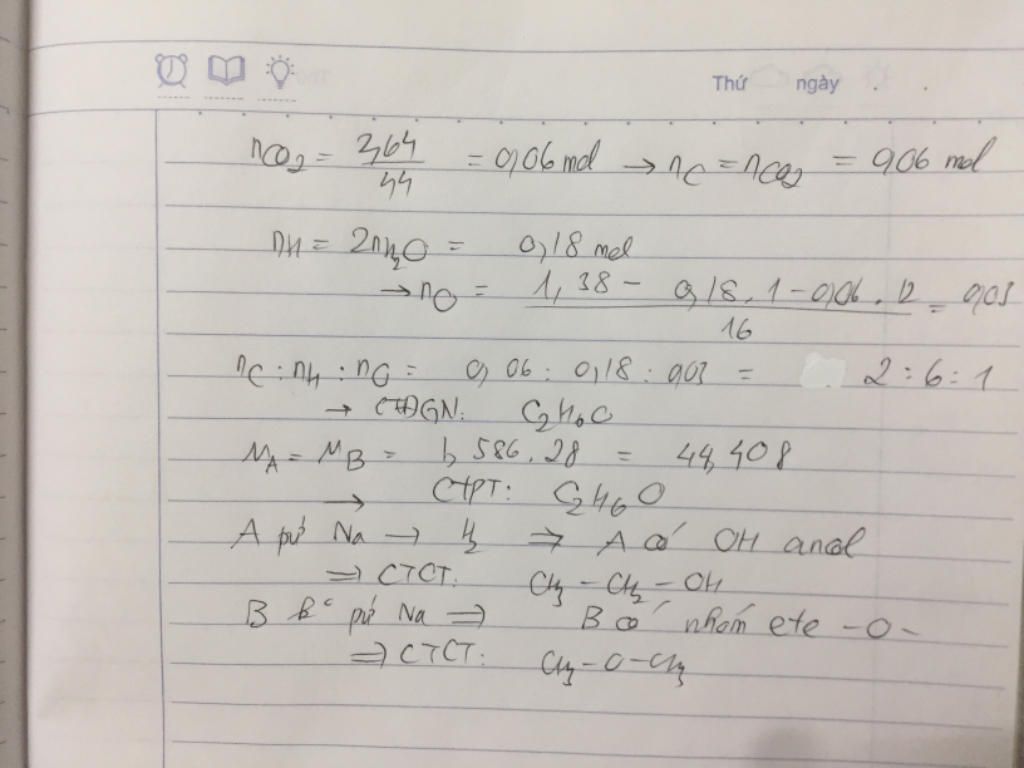 Thứ ngày
nCO2 = 2,64/44 = 0,06 mol → nC = nCO2 = 0,06 mol
nH = 2nH2O = 0,18 mol
→ nO = (1,38 - 0,18.1 - 0,06.12)/16 = 0,03
nC : nH : nO = 0,06 : 0,18 : 0,03 = 2 : 6 : 1
→ CTĐGN: C2H6O
MA = MB = 1,586.28 = 44,408
→ CTPT: C2H6O
A pứ Na → H2 ⇒ A có OH ancol
⇒ CTCT: CH3 - CH2 - OH
B k° pứ Na ⇒ B có nhóm ete -O-
⇒ CTCT: CH3 - O - CH3